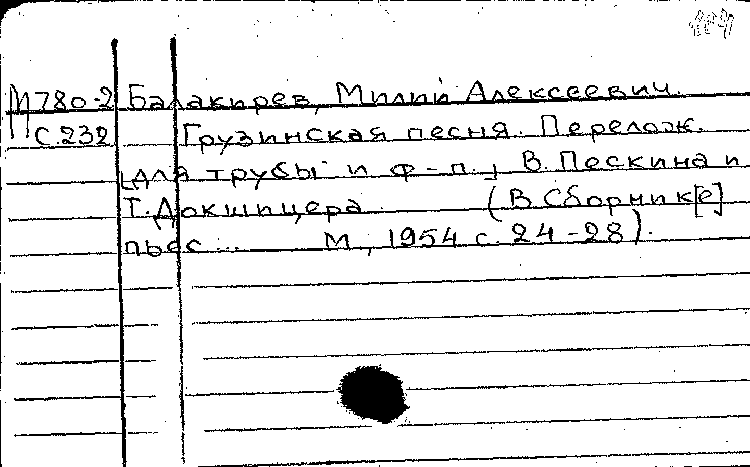 М780-2 Балакирев, Милий Алексеевич.
С.232 Грузинская песня. Перелож.
для трубы и ф-п., В. Пескина и
Т. Докшицера. (В Сборник[е]
пьес... М., 1954 с. 24-28).